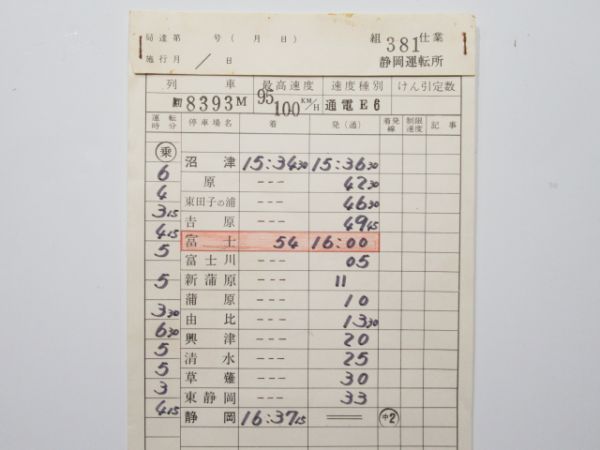 局達第 号( 月 日) 組 381 仕業
施行月 / 日 静岡運転所
列 車 最高速度 速度種別 けん引定数
8393M 95 100 KM/H 通電E6
運転時分 停車場名 着 発(通) 着発線 制限速度 記事
乗
沼津 15:34 30 15:36 30
6
原 --- 42 30
4
東田子の浦 --- 46 30
3 15
吉原 --- 49 45
4 15
富士 54 16:00
5
富士川 --- 05
新蒲原 --- 11
5
蒲原 --- 10
3 30
由比 --- 13 30
6 30
興津 --- 20
5
清水 --- 25
5
草薙 --- 30
3
東静岡 --- 33
4 15
静岡 16:37 15 == 中2